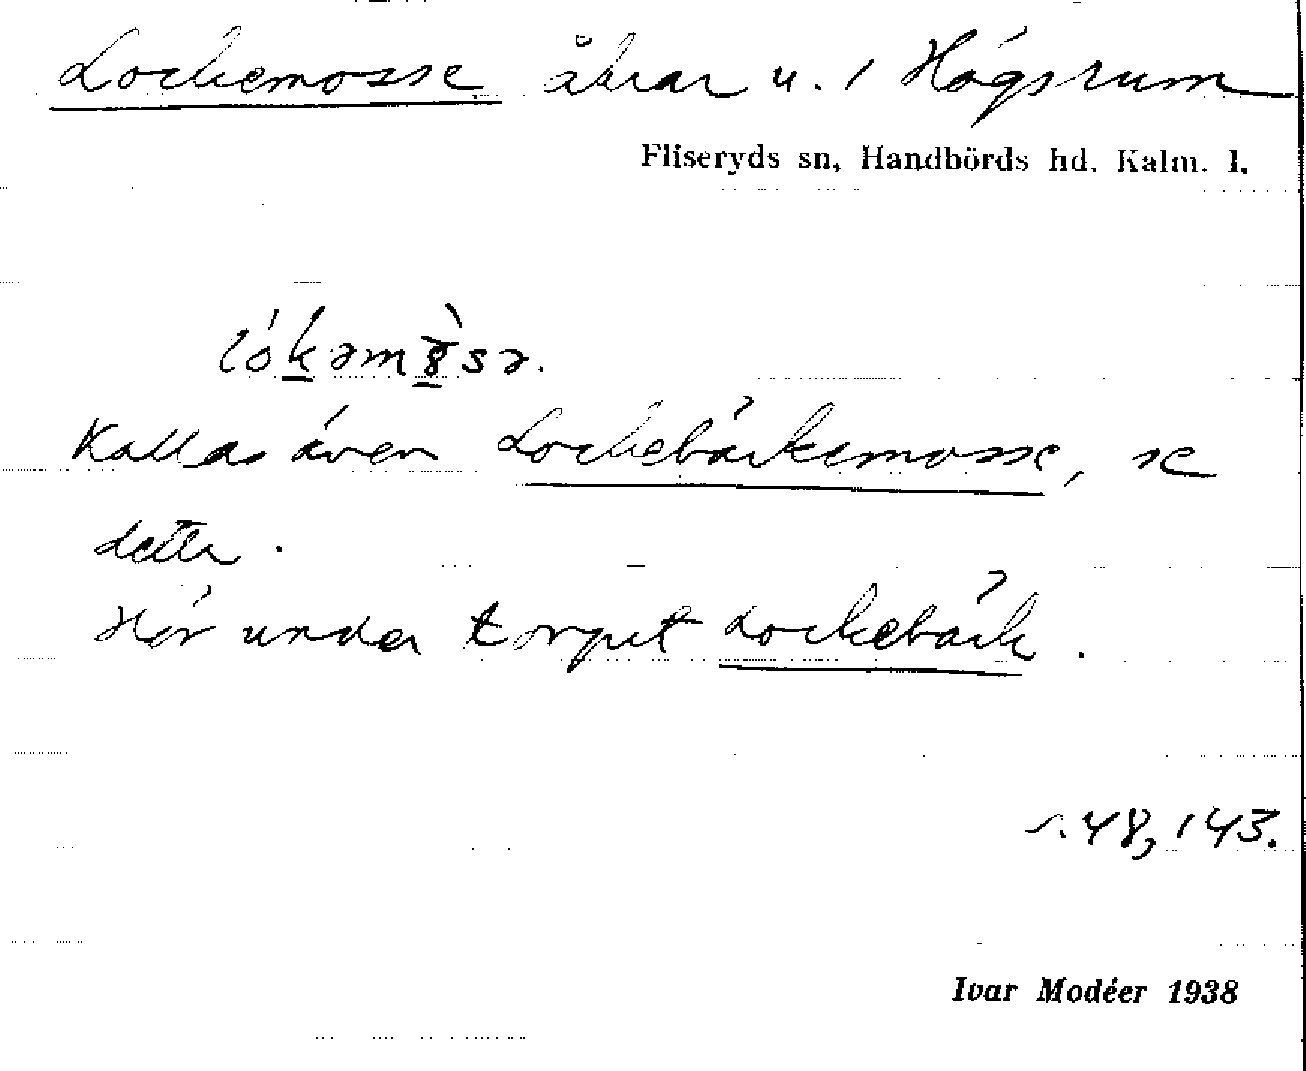 Lockemosse åkrar u. 1 Högsrum
Fliseryds sn, Handbörds hd. Kalm. l.
lókəm8̀sə.
Kallas även Lockebäckemosse, se
detta.
Hör under torpet Lockebäck.
s. 48, 143.
Ivar Modéer 1938